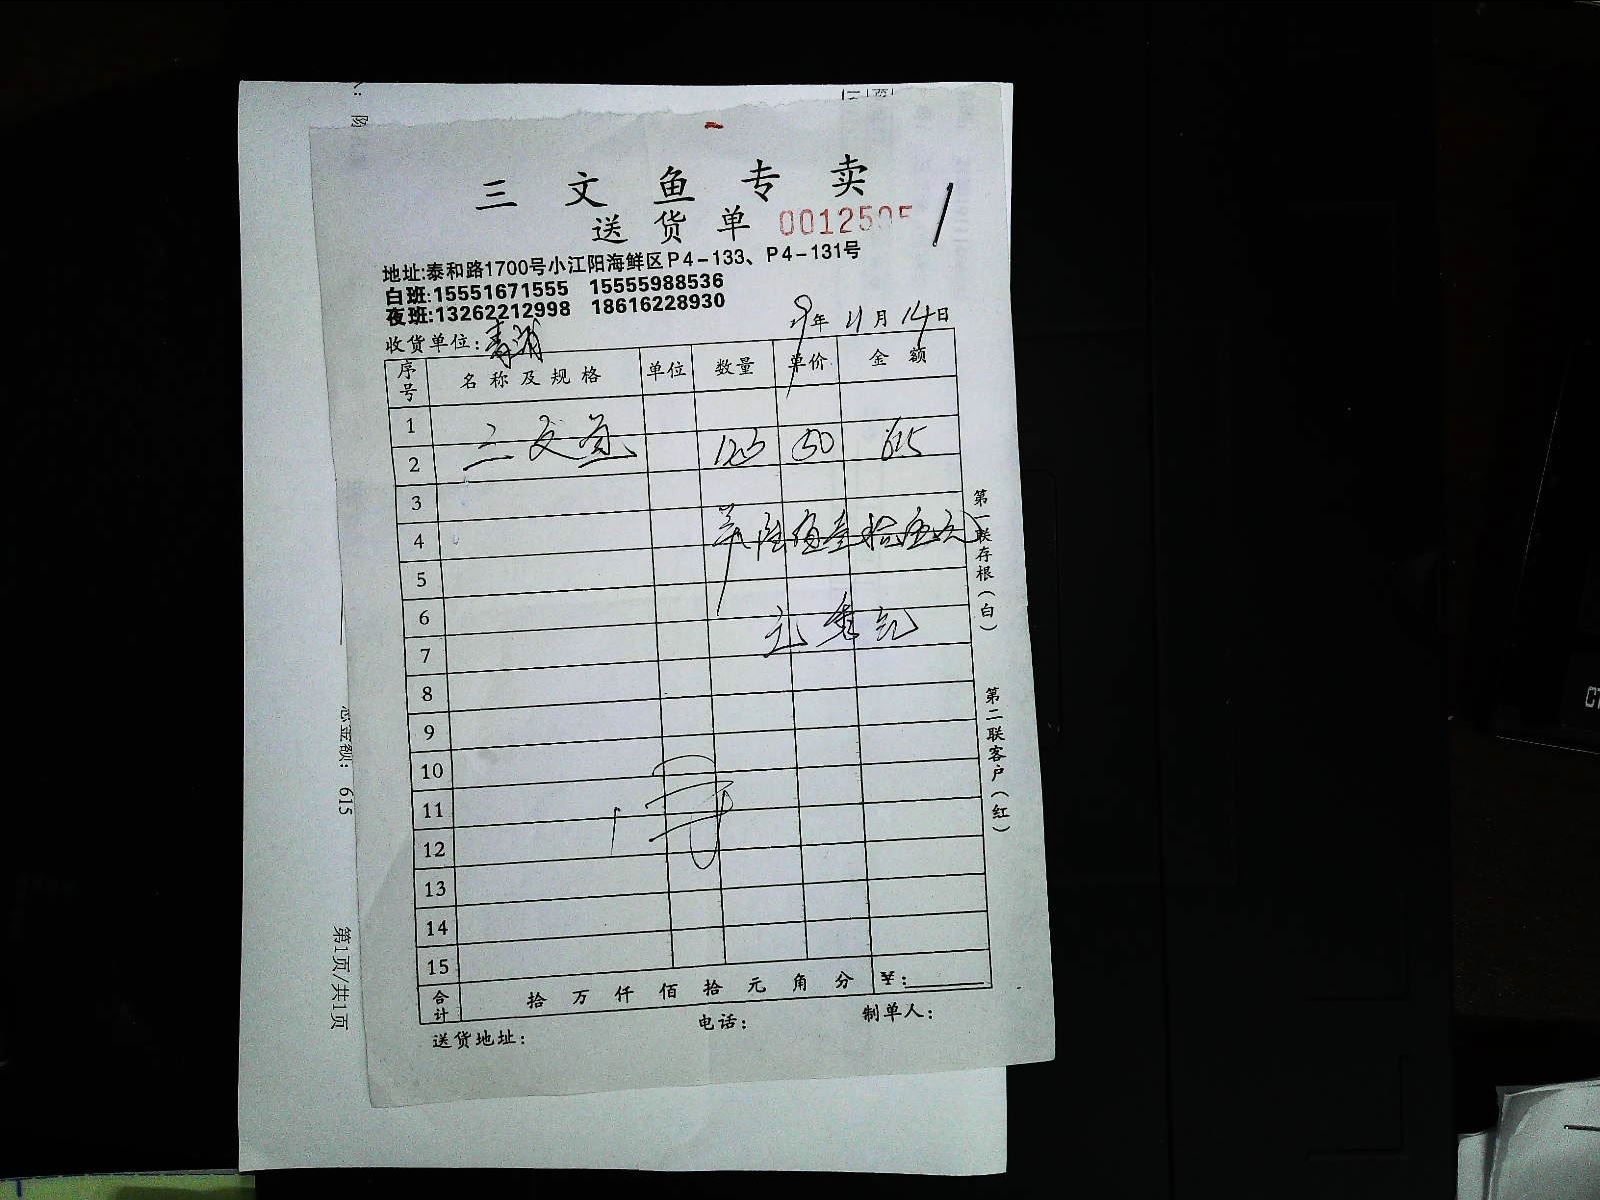 三文鱼专卖
送货单 0012505
地址:泰和路1700号小江阳海鲜区P4-133、P4-131号
白班:15551671555 15555988536
夜班:13262212998 18616228930
19年11月14日
收货单位:青浦
序号 名称及规格 单位 数量 单价 金额
1
2 三文鱼 12.3 50 615
3
4 共陆佰壹拾伍元
5
6
7
8
9
10
11
12
13
14
15
合计 拾万仟佰拾元角分 ¥:
送货地址: 电话: 制单人:
第一联存根(白)
第二联客户(红)
总金额: 615
第1页/共1页